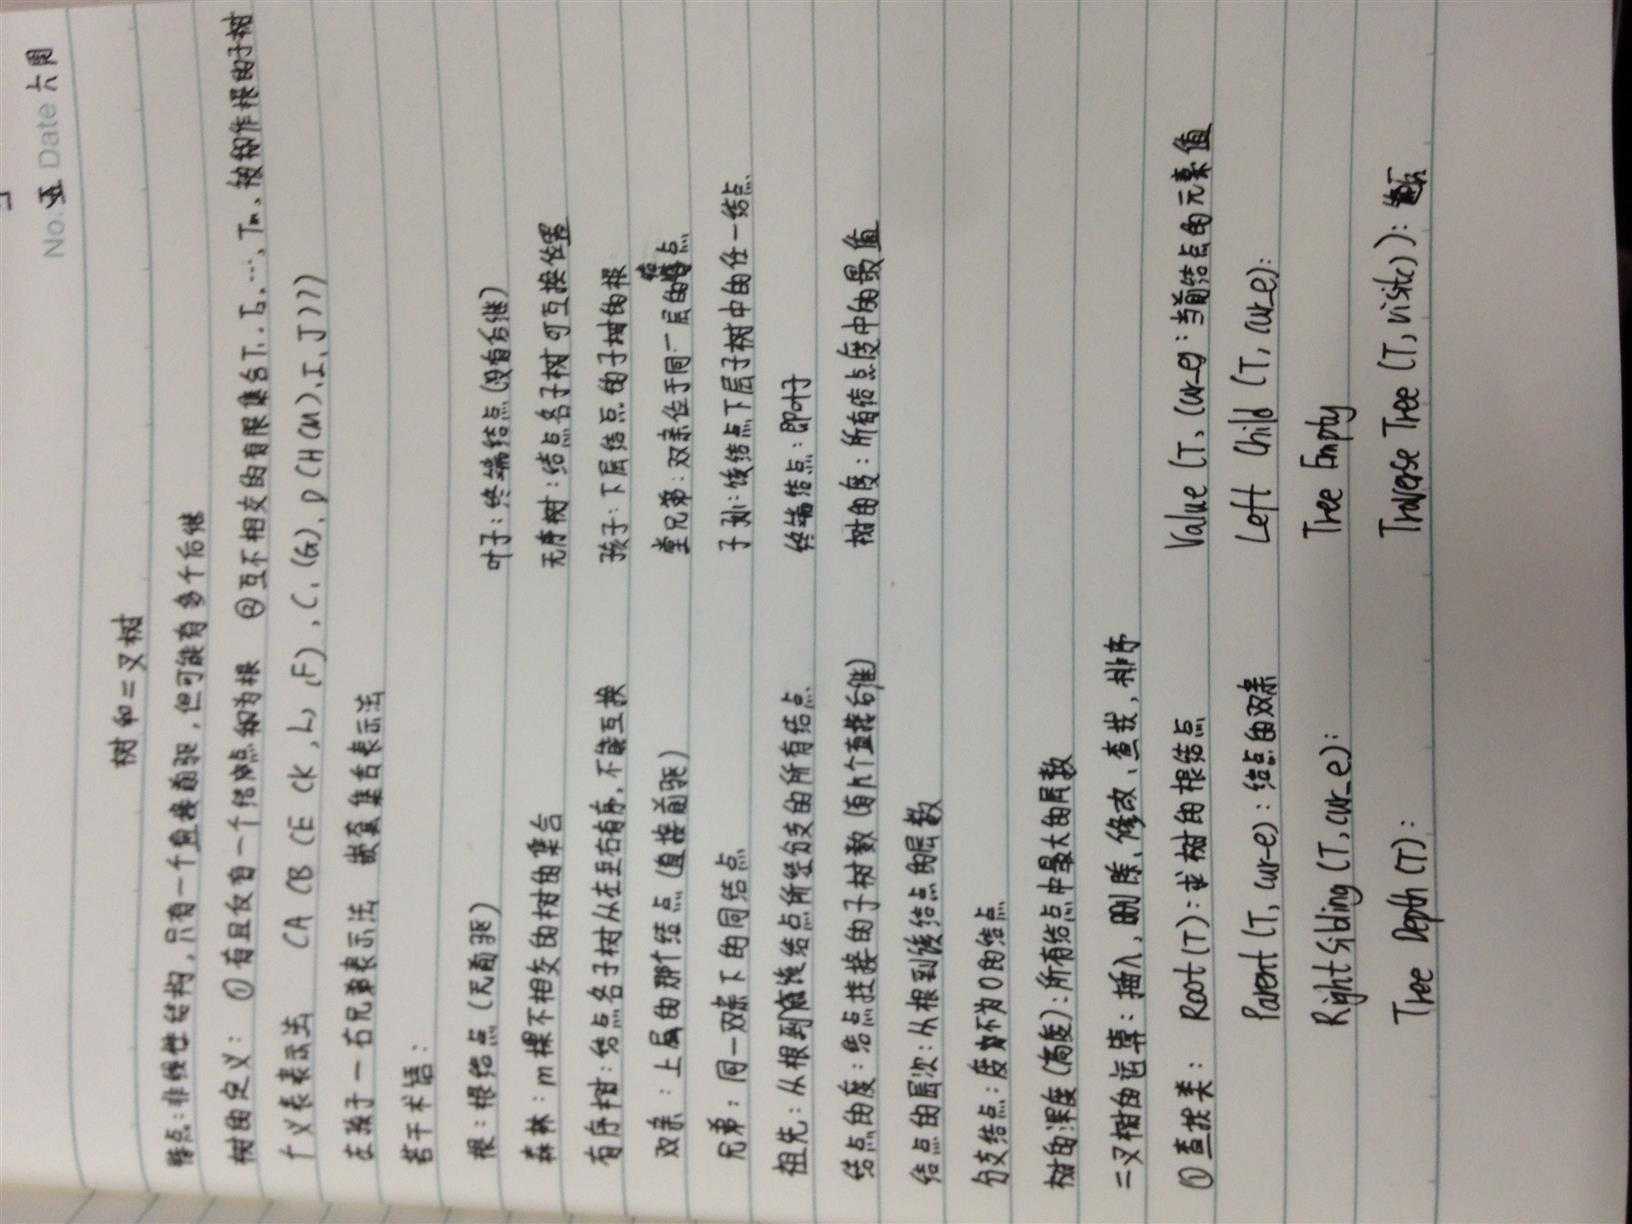 No. 五 Date 六周
树和二叉树
特点：非线性结构，只有一个直接前驱，但可能有多个后继
树的定义：①有且仅有一个结点称为根 ②互不相交的有限集合T₁,T₂,…,Tm、被称作根的子树
广义表表示法 (A (B (E (K, L), F), C, (G), D (H (M), I, J)))
左孩子一右兄弟表示法 嵌套集合表示法
若干术语：
根：根结点（无前驱） 叶子：终端结点（没有后继）
森林：m棵不相交的树的集合 无序树：结点各子树可互换位置
有序树：结点各子树从左至右有序，不能互换 孩子：下层结点的子树的根
双亲：上层的那个结点（直接前驱） 堂兄弟：双亲位于同一层的结点
兄弟：同一双亲下的同结点 子孙：该结点下层子树中的任一结点
祖先：从根到该结点所经分支的所有结点 终端结点：即叶子
结点的度：结点挂接的子树数（有几个直接后继） 树的度：所有结点度中的最值
结点的层次：从根到该结点的层数
分支结点：度不为0的结点
树的深度（高度）：所有结点中最大的层数
二叉树的运算：插入，删除、修改、查找，排序
①查找类： Root(T)：求树的根结点 Value (T, cur_e：当前结点的元素值
Parent (T, cur-e)：结点的双亲 Left Child (T, cur_e)：
Right Sibling (T, cur_e)： Tree Empty
Tree Depth (T)： Traverse Tree (T, visit())：